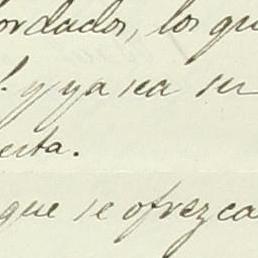 ordados, los qu
y ya sea su
esta.
que se ofrezca